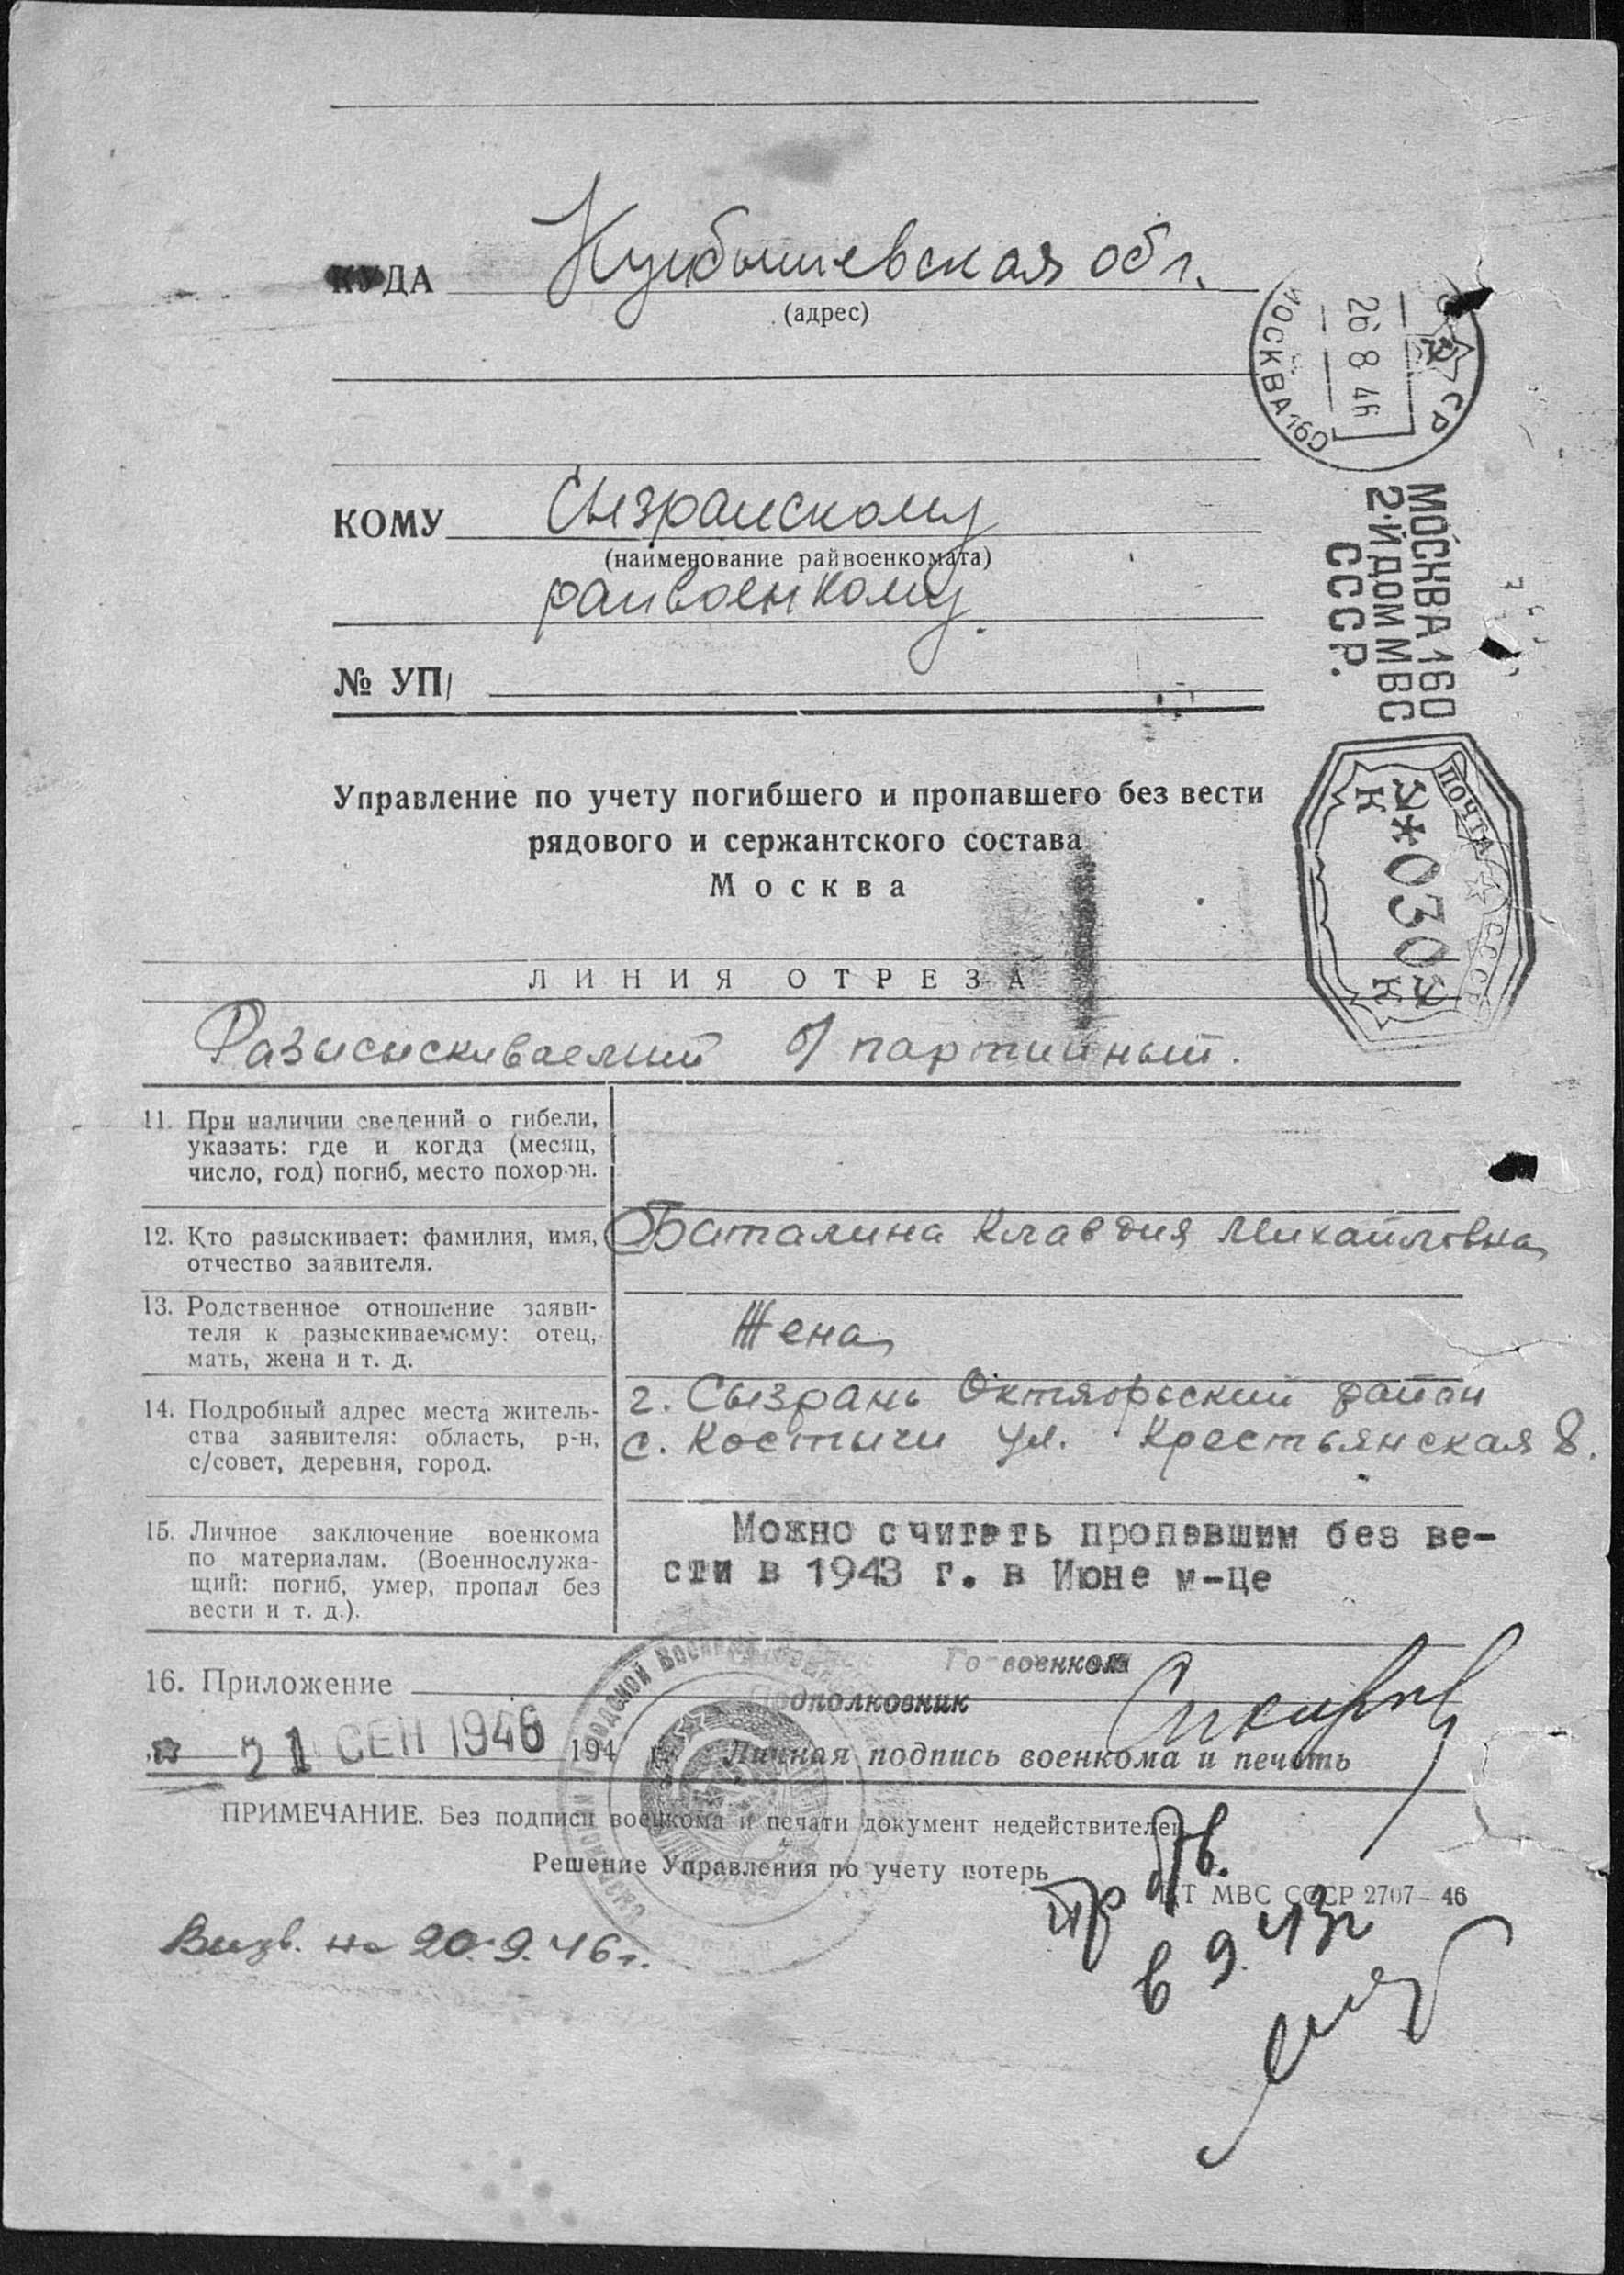 КУДА Куйбышевская обл.
(адрес)
МОСКВА 160
26 8 46
СССР
КОМУ Сызранскому
(наименование райвоенкомата)
райвоенкому.
МОСКВА 160
2-Й ДОМ МВС
СССР.
№ УП/
ПОЧТА СССР
К *030 К
Управление по учету погибшего и пропавшего без вести
рядового и сержантского состава
Москва
ЛИНИЯ ОТРЕЗА
Разысыскиваемый б/партийный.
11. При наличии сведений о гибели,
указать: где и когда (месяц,
число, год) погиб, место похорон.
12. Кто разыскивает: фамилия, имя,
отчество заявителя.
Баталина Клавдия Михайловна
13. Родственное отношение заяви-
теля к разыскиваемому: отец,
мать, жена и т. д.
Жена
14. Подробный адрес места житель-
ства заявителя: область, р-н,
с/совет, деревня, город.
г. Сызрань Октябрьский район
с. Костычи ул. Крестьянская 8.
15. Личное заключение военкома
по материалам. (Военнослужа-
щий: погиб, умер, пропал без
вести и т. д.).
Можно считать пропавшим без ве-
сти в 1943 г. в Июне м-це
Горвоенком
16. Приложение
Подполковник
21 СЕН 1946 194 г.
Личная подпись военкома и печать
ПРИМЕЧАНИЕ. Без подписи военкома и печати документ недействителен
Решение Управления по учету потерь
пр бв.
Т МВС СССР 2707—46
в 9.43г
на 20.9.46г.